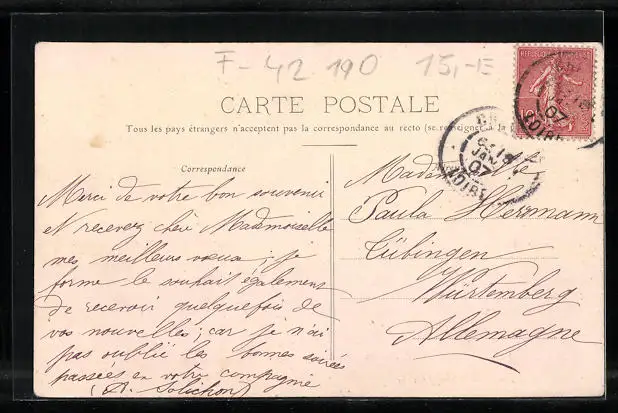 F-42190 15,-E
CARTE POSTALE
Tous les pays étrangers n'acceptent pas la correspondance au recto (se renseigner à la
Correspondance
Merci de votre bon souvenir
et recevez chère Mademoiselle
mes meilleurs vœux; je
forme le souhait également
de recevoir quelquefois de
vos nouvelles; car je n'ai
pas oublié les bonnes soirées
passées en votre compagnie
REPUBLIQUE
JANV
07
LOIRE
07
LOIRE
Mademoiselle
Paula Herrmann
Tübingen
Würtemberg
Allemagne